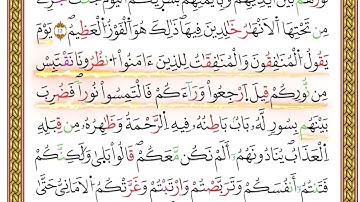 نُورُهُم بَيْنَ أَيْدِيهِمْ وَبِأَيْمَٰنِهِم بُشْرَىٰكُمُ ٱلْيَوْمَ جَنَّٰتٌ تَجْرِى
مِن تَحْتِهَا ٱلْأَنْهَٰرُ خَٰلِدِينَ فِيهَا ذَٰلِكَ هُوَ ٱلْفَوْزُ ٱلْعَظِيمُ ١٢ يَوْمَ
يَقُولُ ٱلْمُنَٰفِقُونَ وَٱلْمُنَٰفِقَٰتُ لِلَّذِينَ ءَامَنُوا۟ ٱنظُرُونَا نَقْتَبِسْ
مِن نُّورِكُمْ قِيلَ ٱرْجِعُوا۟ وَرَآءَكُمْ فَٱلْتَمِسُوا۟ نُورًا فَضُرِبَ
بَيْنَهُم بِسُورٍ لَّهُۥ بَابٌۢ بَاطِنُهُۥ فِيهِ ٱلرَّحْمَةُ وَظَٰهِرُهُۥ مِن قِبَلِهِ
ٱلْعَذَابُ يُنَادُونَهُمْ أَلَمْ نَكُن مَّعَكُمْ قَالُوا۟ بَلَىٰ وَلَٰكِنَّكُمْ
فَتَنتُمْ أَنفُسَكُمْ وَتَرَبَّصْتُمْ وَٱرْتَبْتُمْ وَغَرَّتْكُمُ ٱلْأَمَانِىُّ حَتَّىٰ